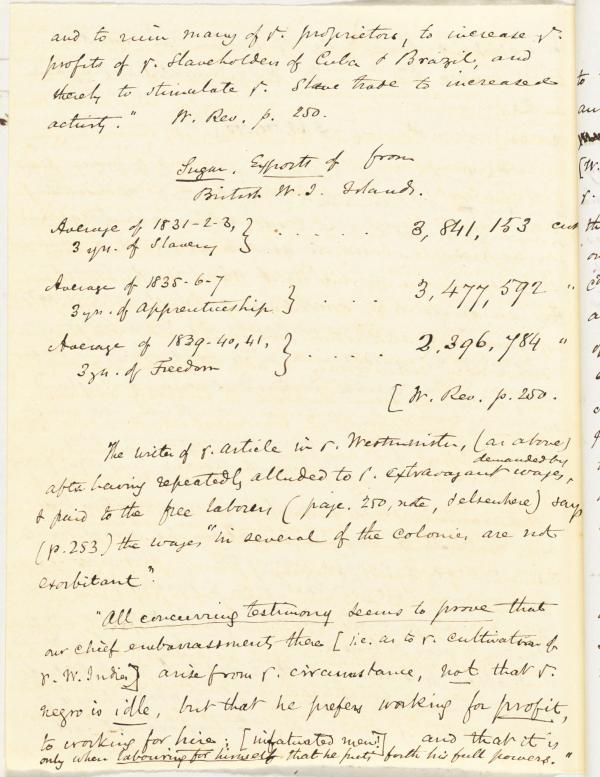 and to ruin many of ye. proprietors, to increase ye.
profits of ye. Slaveholders of Cuba & Brazil, and
thereby to stimulate ye. Slave trade to increased
activity." W. Rev. p. 250.
Sugar. Exports of from
British W. I. Islands.
Average of 1831-2-3, } . . . . . 3,841,153 cwt
3 yrs. of Slavery
Average of 1835-6-7 } . . . . 3,477,592 "
3 yrs. of Apprenticeship
Average of 1839-40, 41, } . . . . 2,396,784 "
3 yrs. of Freedom
[W. Rev. p. 250.
The writer of ye. article in ye. Westminster, (as above)
demanded by,
after having repeatedly alluded to ye. extravagant wages,
& paid to the free laborers (page. 250, note, & elsewhere) says
(p. 253) the wages "in several of the colonies are not
exorbitant".
"All concurring testimony seems to prove that
our chief embarrassments there [i.e. as to ye. cultivation of
ye. W. Indies] arise from ye. circumstance, not that ye.
negro is idle, but that he prefers working for profit,
to working for hire; [infatuated men!] and that it is
only when labouring for himself that he puts forth his full powers."